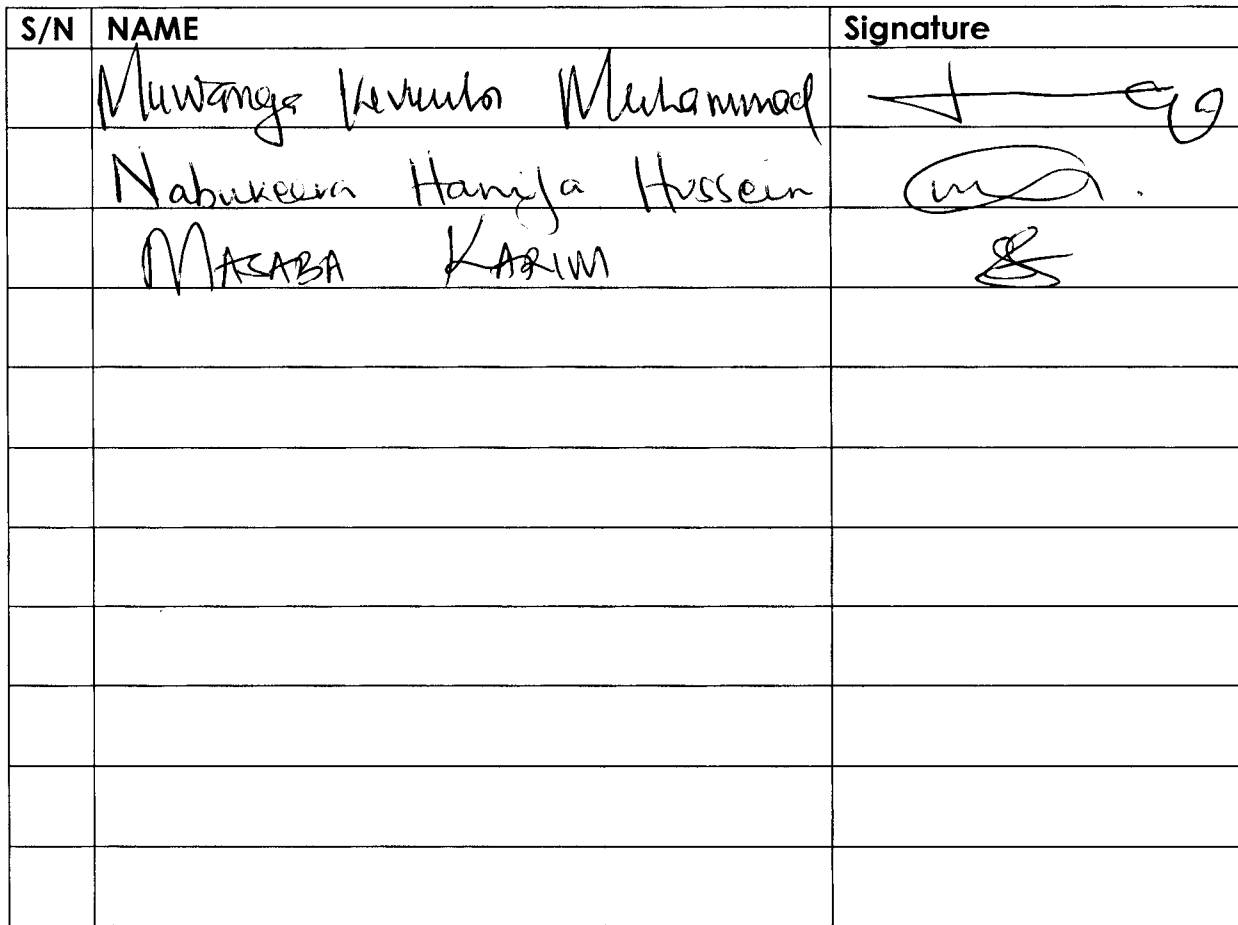 S/N NAME Signature
Muwanga Kevumbi Muhammad
Nabukeera Hanifa Hussein
MASABA KARIM